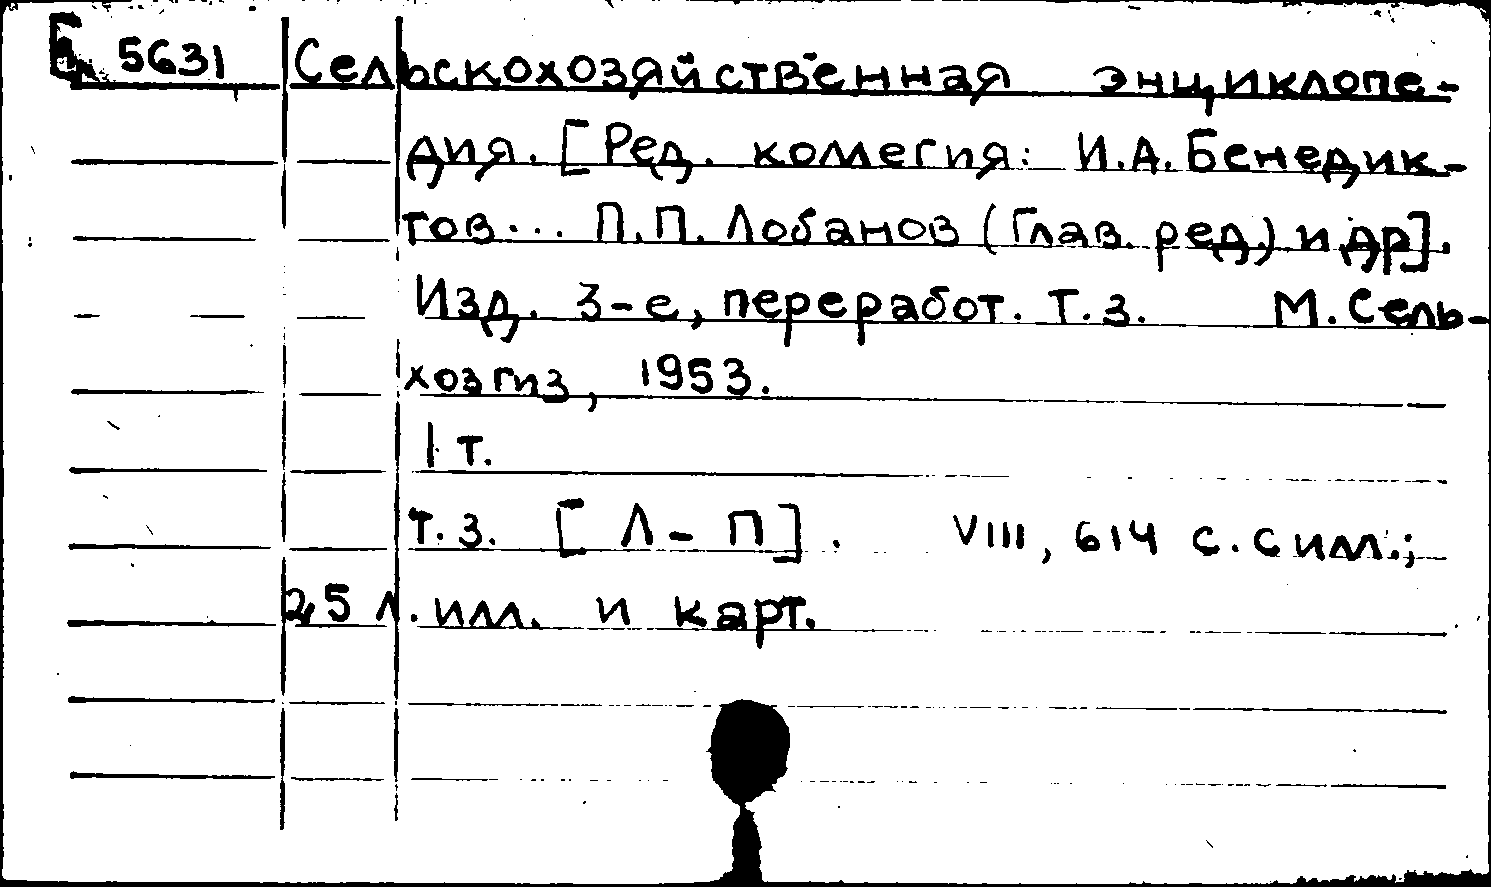 5631 Сельскохозяйственная энциклопе-
дия. [Ред. коллегия: И.А. Бенедик-
тов... П.П. Лобанов (Глав. ред.) и др].
Изд. 3-е, переработ. Т.3. М. Сель-
хозгиз, 1953.
1 т.
Т.3. [Л - П]. VIII, 614 с. с илл.;
25 л. илл. и карт.